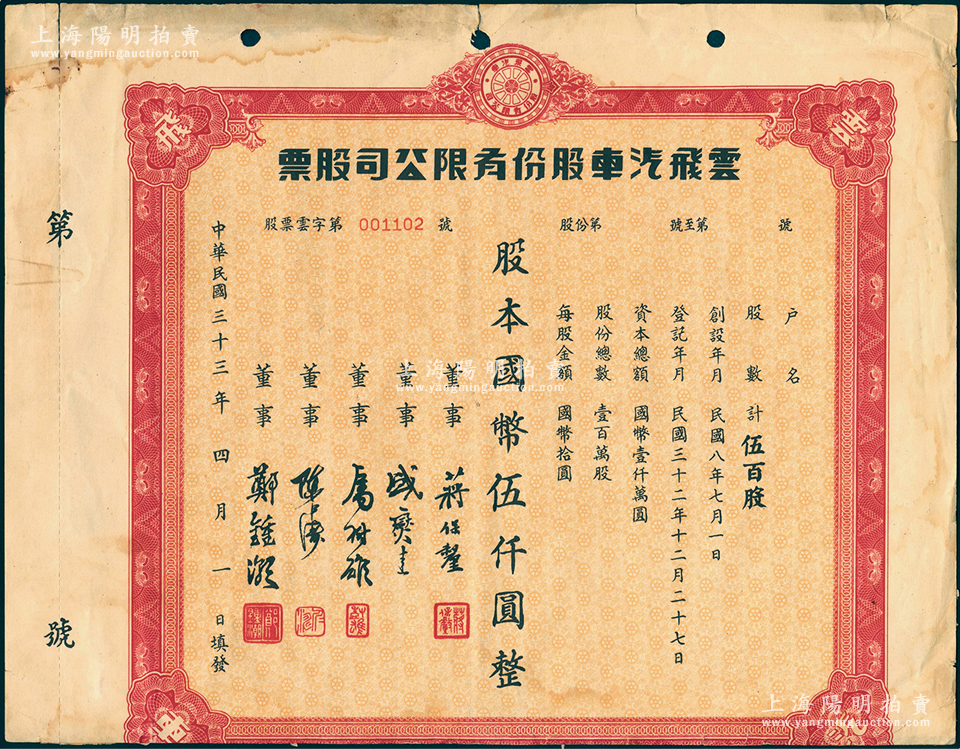 上海陽明拍賣
www.yangmingauction.com
上海陽明拍賣
www.yangmingauction.com
飛
雲
雲飛汽車股份有限公司股票
號
號至第
股份第
股票雲字第 001102 號
戶名
股數 計 伍百股
創設年月 民國八年七月一日
登記年月 民國三十二年十二月二十七日
資本總額 國幣壹仟萬圓
股份總數 壹百萬股
每股金額 國幣拾圓
股本國幣伍仟圓整
董事 蔣保釐
董事
董事
董事
董事 鄭鍾潮
中華民國三十三年四月一日填發
第 號
上海陽明拍賣
www.yangmingauction.com
車
上海陽明拍賣
www.yangmingauction.com